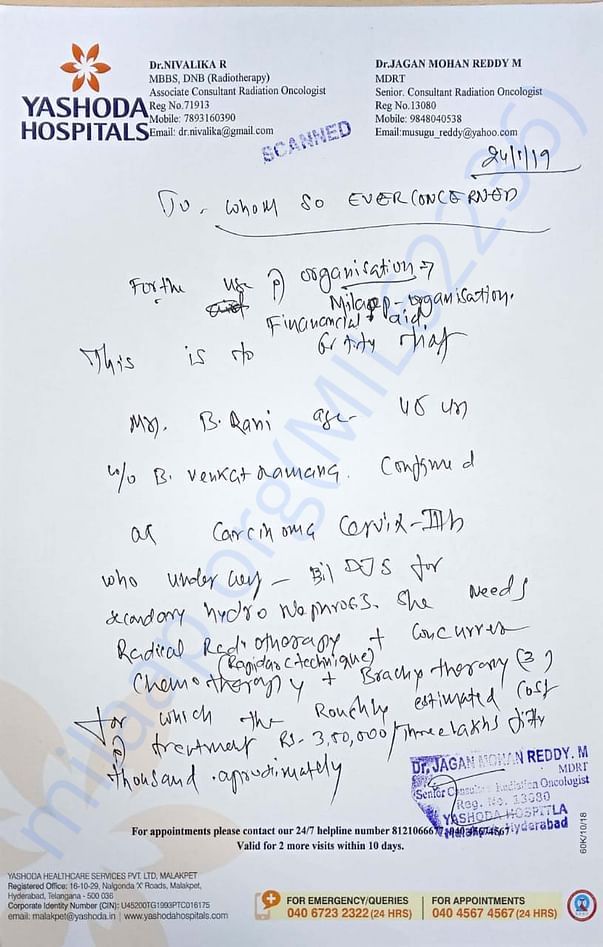 YASHODA
HOSPITALS
Dr.NIVALIKA R
MBBS, DNB (Radiotherapy)
Associate Consultant Radiation Oncologist
Reg No.71913
Mobile: 7893160390
Email: dr.nivalika@gmail.com
Dr.JAGAN MOHAN REDDY M
MDRT
Senior. Consultant Radiation Oncologist
Reg No.13080
Mobile: 9848040538
Email:musugu_reddy@yahoo.com
SCANNED
24/1/19
To, whom so EVER CONCERNED
For the use of organisation
Milaap-organisation.
Finanancial aid
This is to Certify that
Mrs. B. Rani age - 45
w/o B. Venkat Ramana. Confirmed
as Carcinoma Cervix-IIIb
who under - Bil DJS for
secondary hydro nephrosis. She needs
Radical Radiotherapy + Concurren
(Rapidarc technique)
Chemotherapy + Brachy therapy (3)
for which the Roughly estimated cost
of treatment Rs- 3,50,000/Three lakhs fifty
thousand. aproximately
Dr. JAGAN MOHAN REDDY. M
MDRT
Senior Consultant Radiation Oncologist
Reg. No. 13080
YASHODA HOSPITLA
Malakpet, Hyderabad
For appointments please contact our 24/7 helpline number 8121066677,
Valid for 2 more visits within 10 days.
60K/10/18
YASHODA HEALTHCARE SERVICES PVT. LTD, MALAKPET
Registered Office: 16-10-29, Nalgonda 'X' Roads, Malakpet,
Hyderabad, Telangana - 500 036
Corporate Identity Number (CIN): U45200TG1993PTC016175
email: malakpet@yashoda.in | www.yashodahospitals.com
FOR EMERGENCY/QUERIES
040 6723 2322 (24 HRS)
FOR APPOINTMENTS
040 4567 4567 (24 HRS)
milaap.org(MIL62236)